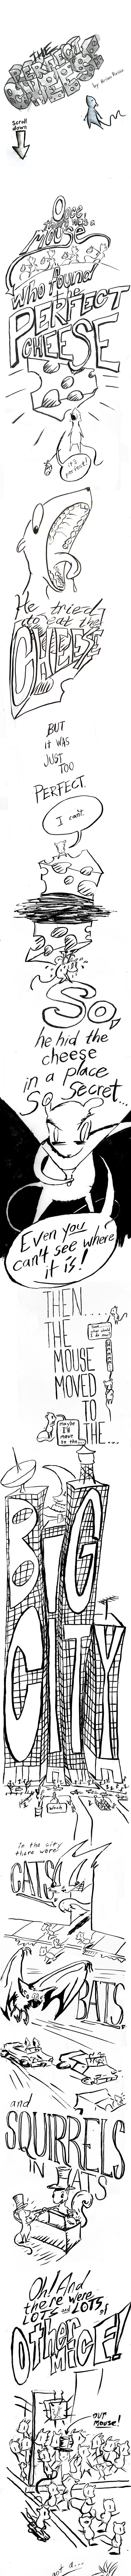 THE
PERFECT
CHEESE
by Brian Russo
Scroll
down
Once,
there was a
Mouse
who found
the
PERFECT
CHEESE
It's
perfect!
He tried
to eat the
CHEESE
BUT
IT WAS
JUST
TOO
PERFECT.
I can't.
So,
he hid the
cheese
in a place
So Secret...
Even you
can't see where
it is!
THEN....
THE
MOUSE
MOVED
TO
THE...
maybe
I'll
move
to the...
BIG
CITY
in the city
there were
CATS
BATS
and
SQUIRRELS
IN HATS
Oh! And
there were
LOTS and LOTS
of
other
MICE!
our
mouse!